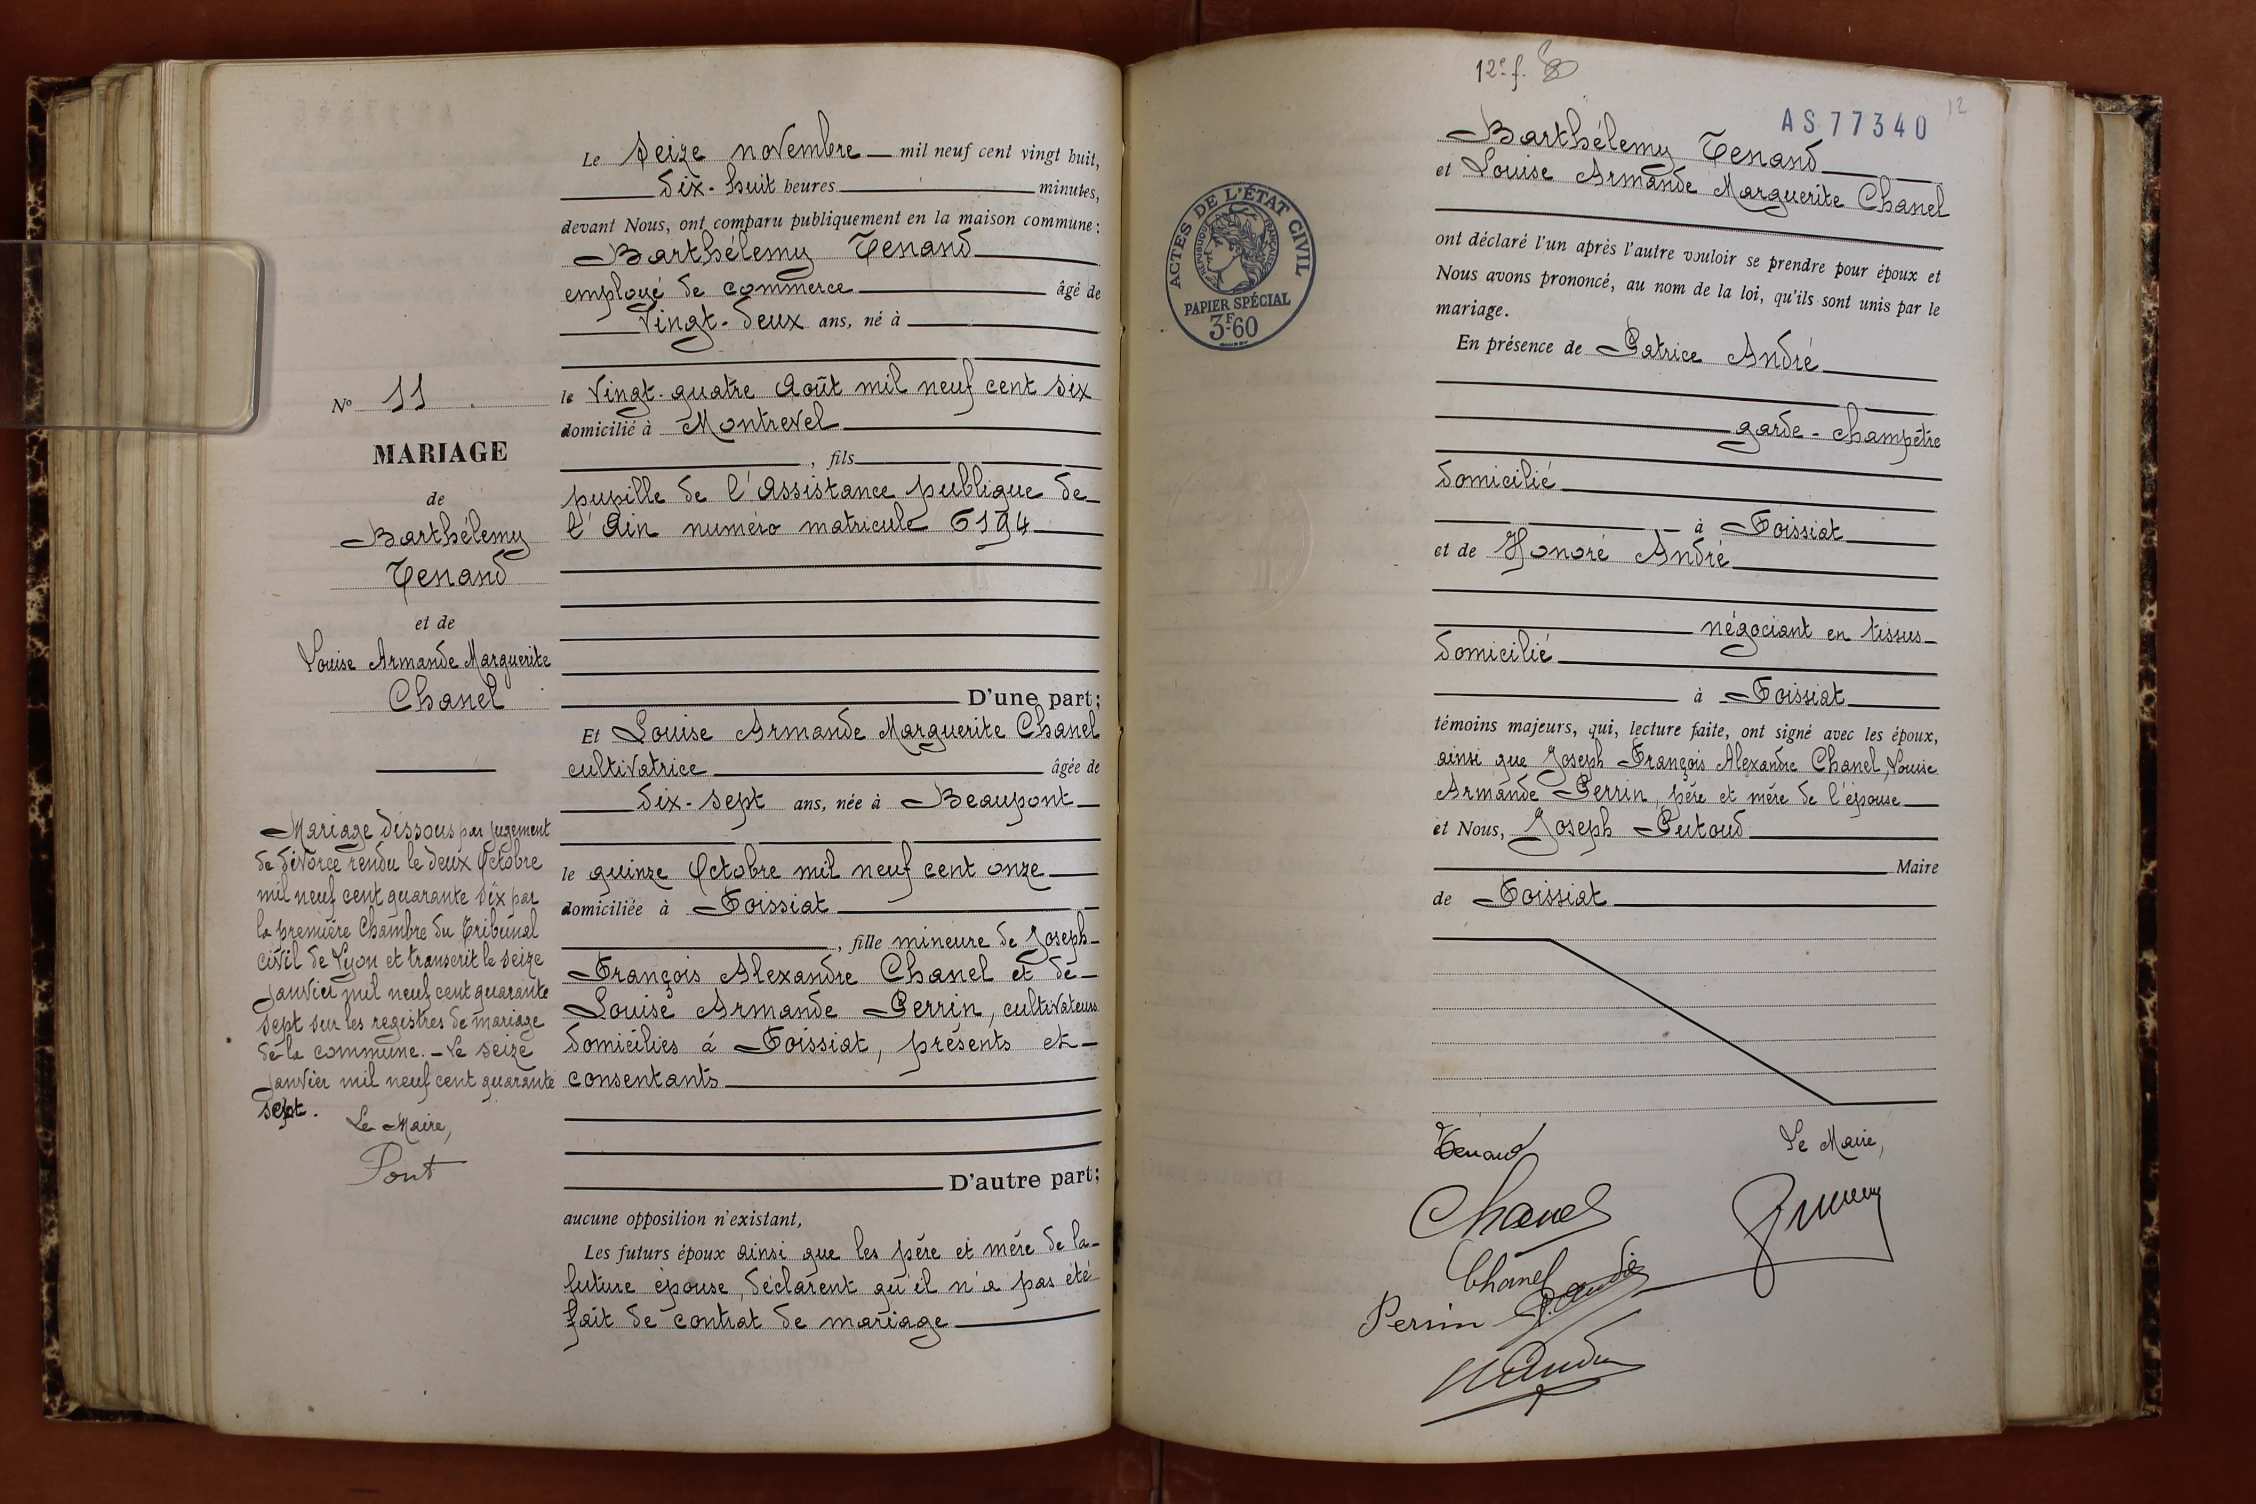 Nº 11
MARIAGE
de
Barthélemy
Tenand
et de
Louise Armande Marguerite
Chanel
Mariage dissous par jugement
de divorce rendu le deux Octobre
mil neuf cent quarante six par
la première Chambre du Tribunal
civil de Lyon et transcrit le seize
janvier mil neuf cent quarante
sept sur les registres de mariage
de la commune. - Le seize
janvier mil neuf cent quarante
sept.
Le Maire,
Pont
Le seize novembre mil neuf cent vingt huit,
dix-huit heures minutes,
devant Nous, ont comparu publiquement en la maison commune :
Barthélemy Tenand
employé de commerce âgé de
vingt-deux ans, né à
le vingt-quatre Août mil neuf cent six
domicilié à Montrevel
, fils
pupille de l'Assistance publique de
l'Ain numéro matricule 6194
D'une part ;
Et Louise Armande Marguerite Chanel
cultivatrice âgée de
dix-sept ans, née à Beaupont
le quinze Octobre mil neuf cent onze
domiciliée à Foissiat
, fille mineure de Joseph
François Alexandre Chanel et de
Louise Armande Perrin, cultivateurs
domiciliés à Foissiat, présents et
consentants
D'autre part ;
aucune opposition n'existant,
Les futurs époux ainsi que les père et mère de la
future épouse, déclarent qu'il n'a pas été
fait de contrat de mariage
12e f.
12
AS77340
ACTES DE L'ÉTAT CIVIL
RÉPUBLIQUE FRANÇAISE
PAPIER SPÉCIAL
3F60
Barthélemy Tenand
et Louise Armande Marguerite Chanel
ont déclaré l'un après l'autre vouloir se prendre pour époux et
Nous avons prononcé, au nom de la loi, qu'ils sont unis par le
mariage.
En présence de Patrice André
garde-champêtre
domicilié
à Foissiat
et de Honoré André
négociant en tissus
domicilié
à Foissiat
témoins majeurs, qui, lecture faite, ont signé avec les époux,
ainsi que Joseph François Alexandre Chanel, Louise
Armande Perrin, père et mère de l'épouse
et Nous, Joseph Putoud
Maire
de Foissiat
Tenand
Le Maire,
Chanel
Chanel
Perrin